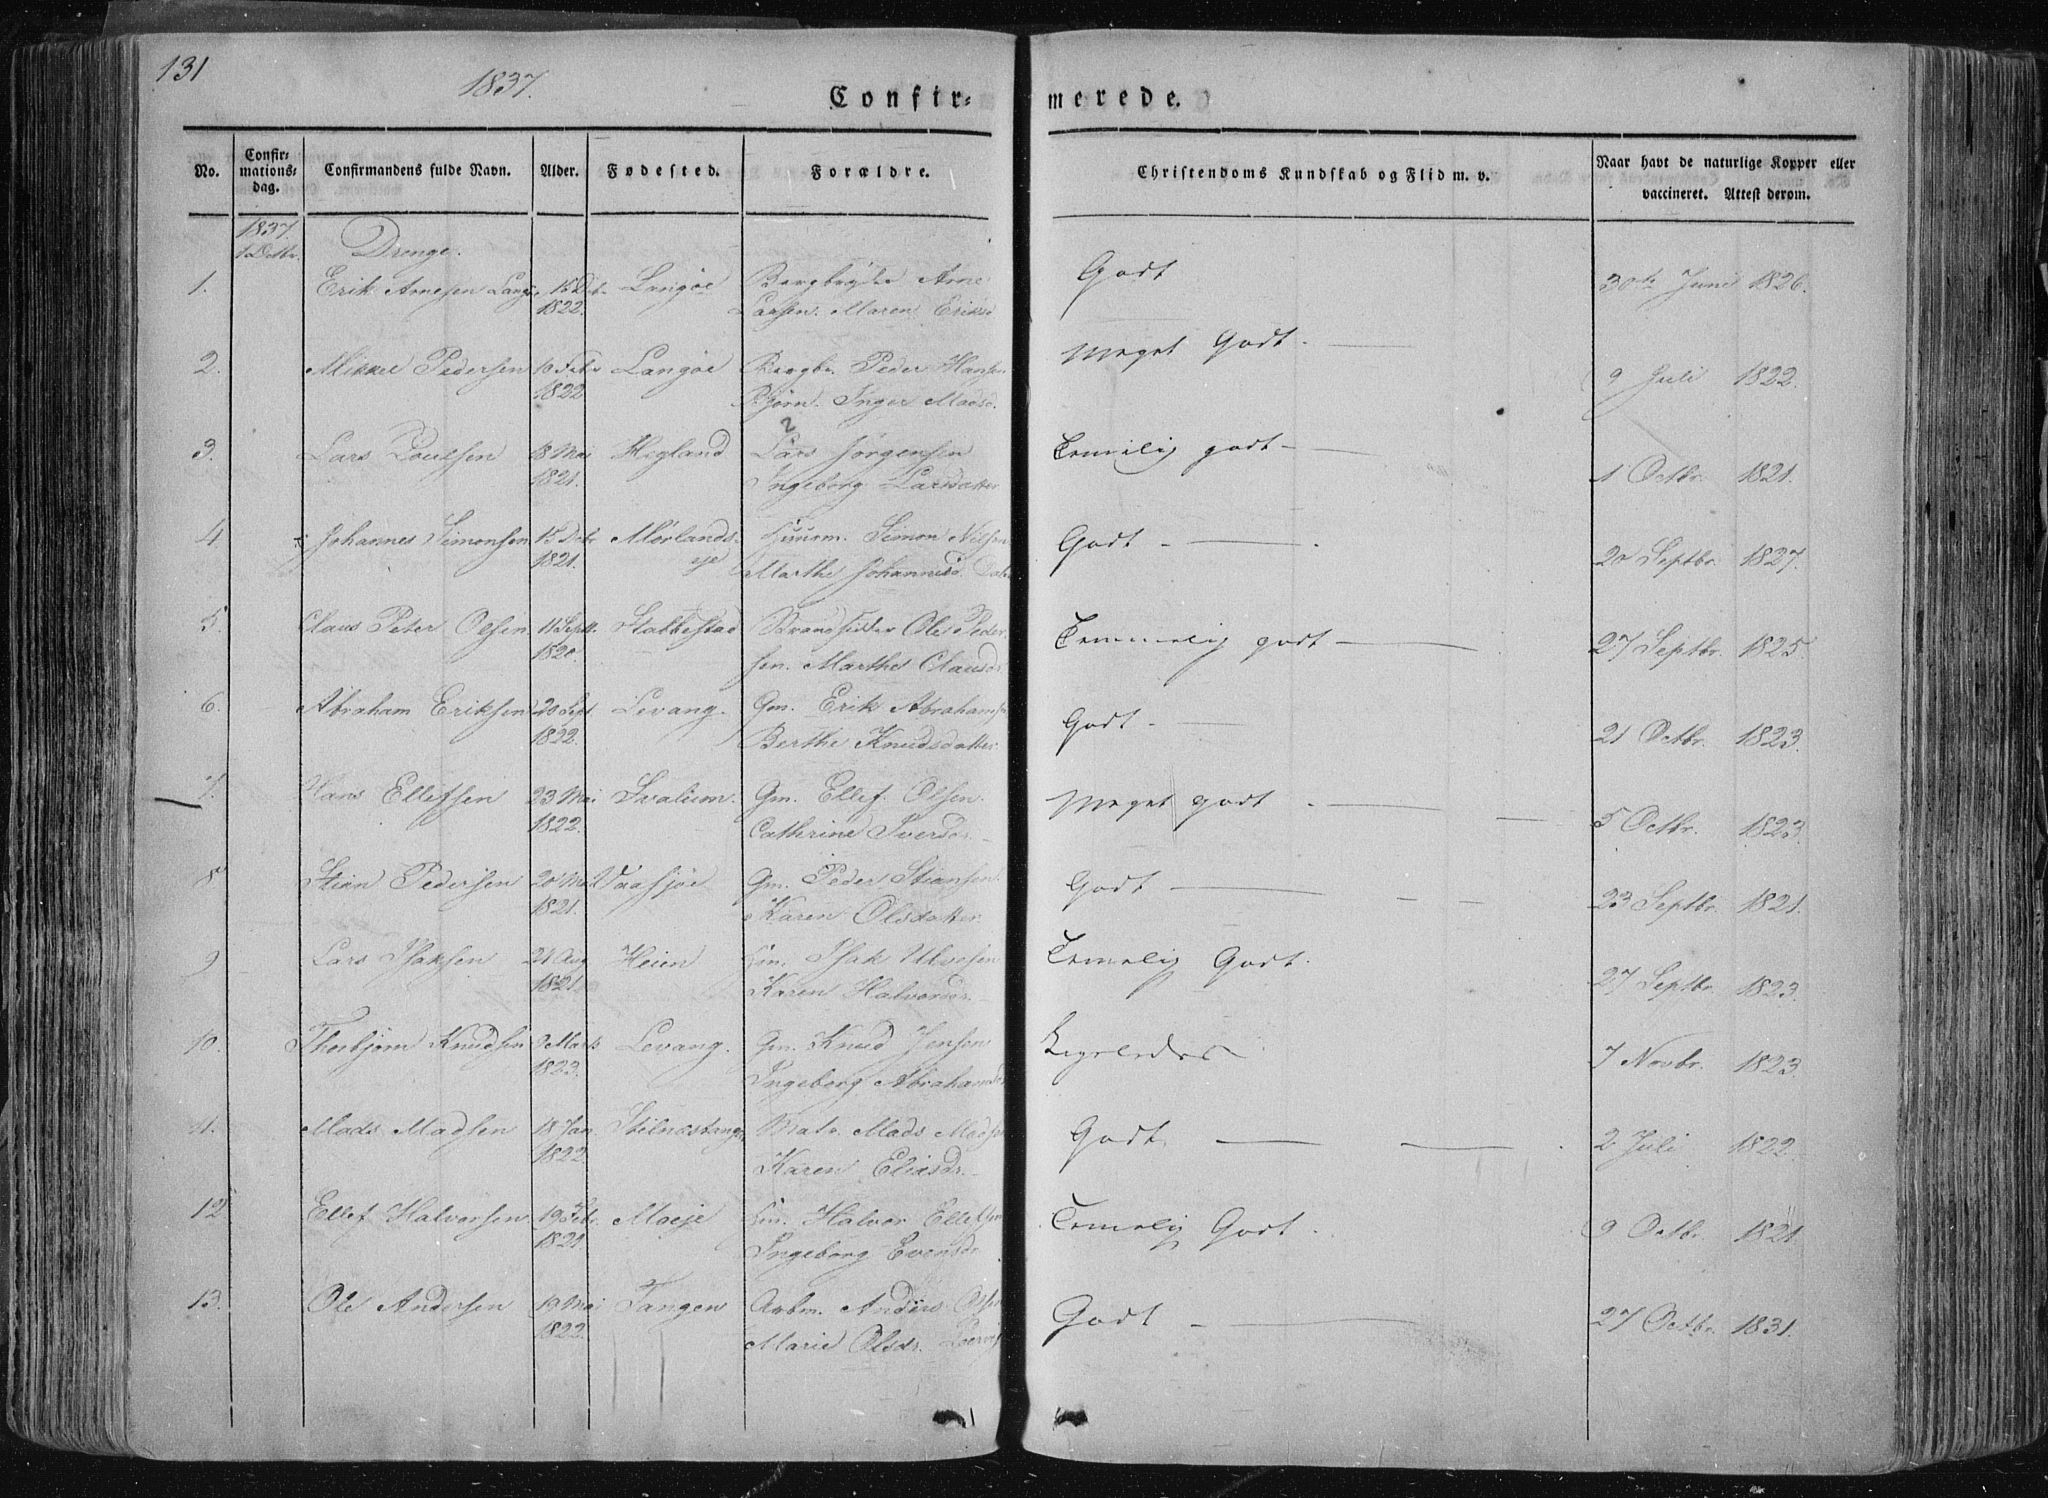 131
1837.
Confir=
merede.
No.
Confir-
mations-
dag.
Confirmandens fulde Navn.
Alder.
Fødested.
Forældre.
Christendoms Kundskab og Flid m. v.
Naar havt de naturlige Kopper eller
vaccineret. Attest derom.
1837.
1 Octbr.
Drenge.
1. Erik Arnesen 15 Langøe Arne Godt 30te Juni 1826.
1822. Larsen. Maren Eriksd
2. Mikkel Pedersen 10 Febr Langøe Bergbr. Peder Hansen Meget Godt. 9 Juli 1822.
1822 Bjørn. Inger Madsd.
2
3. Lars Poulsen 18 Mai Hegland Lars Jørgensen Temelig godt 1 Octbr. 1821.
1821. Ingeborg Larsdatter
4. Johannes Simonsen 15 Morlands Huusm. Simon Nilsen Godt 20 Septbr. 1827.
1821. eje Marthe Johannesd.
5. Claus Peter Olsen 11 Septr. Stabbestad Strandsidder Ole Peder Temmelig godt 27 Septbr. 1825.
1820 sen. Marthe Clausdr
6. Abraham Eriksen 20 Sept. Levang. Gm. Erik Abrahamsen Godt 21 Octbr. 1823.
1822. Berthe Knudsdatter
7. Hans Ellefsen 23 Mai Gm. Ellef Olsen Meget godt 5 Octbr. 1823.
1822. Cathrine Iversdr.
8 Stian Pedersen 20 Vaasjøe Gm. Peder Stiansen Godt 23 Septbr. 1821.
1821. Karen Olsdatter
9 Lars Isaksen 21 Aug Heien Isak Temelig Godt. 27 Septbr. 1823.
1821. Karen Halvorsdr.
10. Thorbjørn Knudsen 9 Marts Levang. Gm. Knud Jensen Ligeledes 7 Novbr. 1823.
1823. Ingeborg Abrahamsdr
11. Mads Madsen 18 Jan. Stilnestangen Matr. Mads Madsen Godt 2 Juli 1822.
1822 Karen Eliasdr.
12 Ellef Halvorsen 19 Febr. Moeje Halvor Ellefsen Temelig Godt. 9 Octbr. 1821
1821 Ingeborg Evensdr
13. Ole Andersen 19 Mai Tangen Arbm. Anders Olsen Godt 27 Octbr. 1831.
1822. Marie Olsdr.